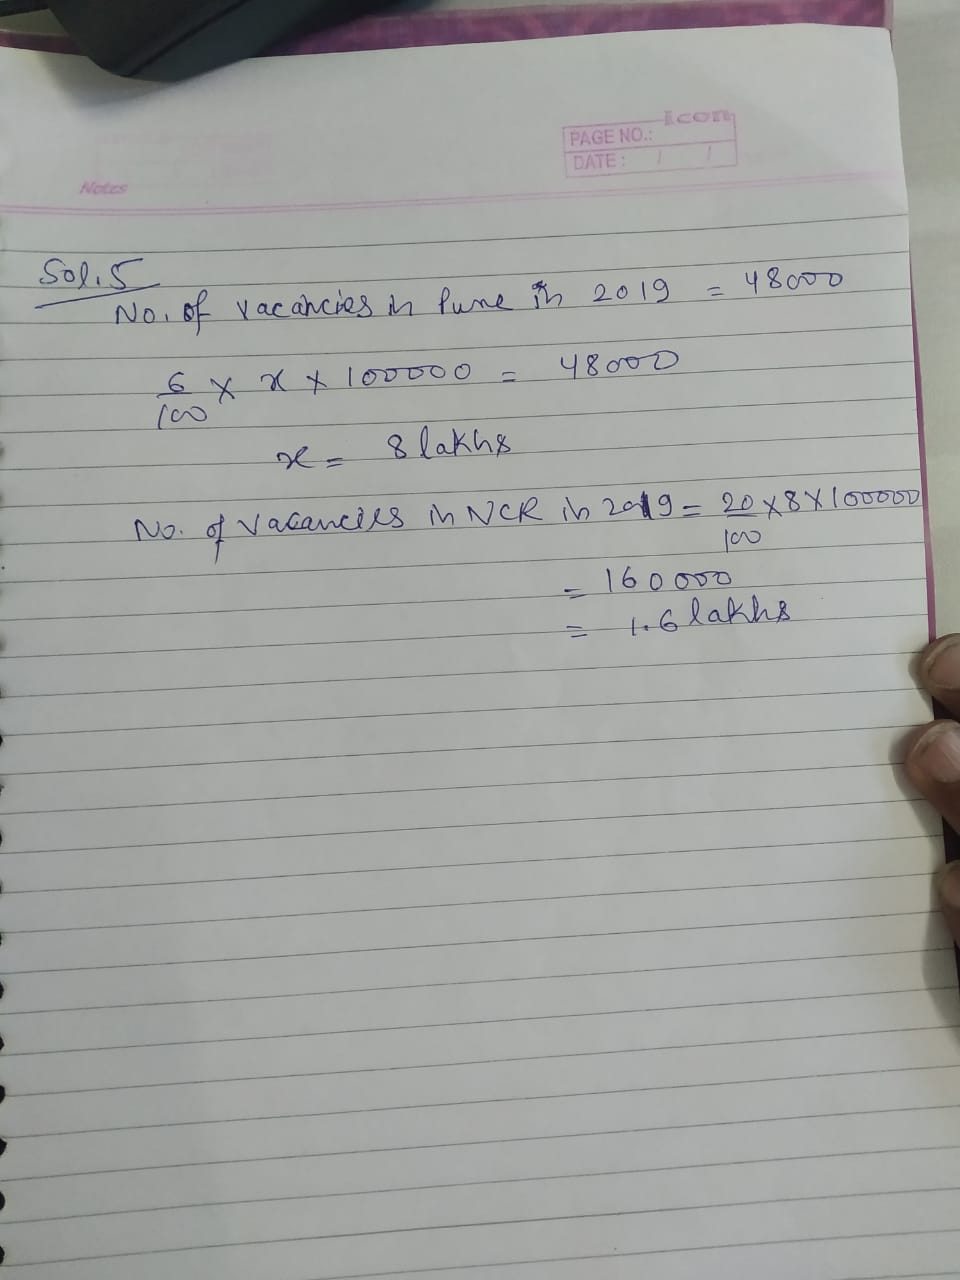 icon
PAGE NO.:
DATE : / /
Notes
Sol. 5
No. of vacancies in Pune in 2019 = 48000
6/100 × x × 100000 = 48000
x = 8 lakhs
No. of vacancies in NCR in 2019 = 20/100 × 8 × 100000
= 160000
= 1.6 lakhs